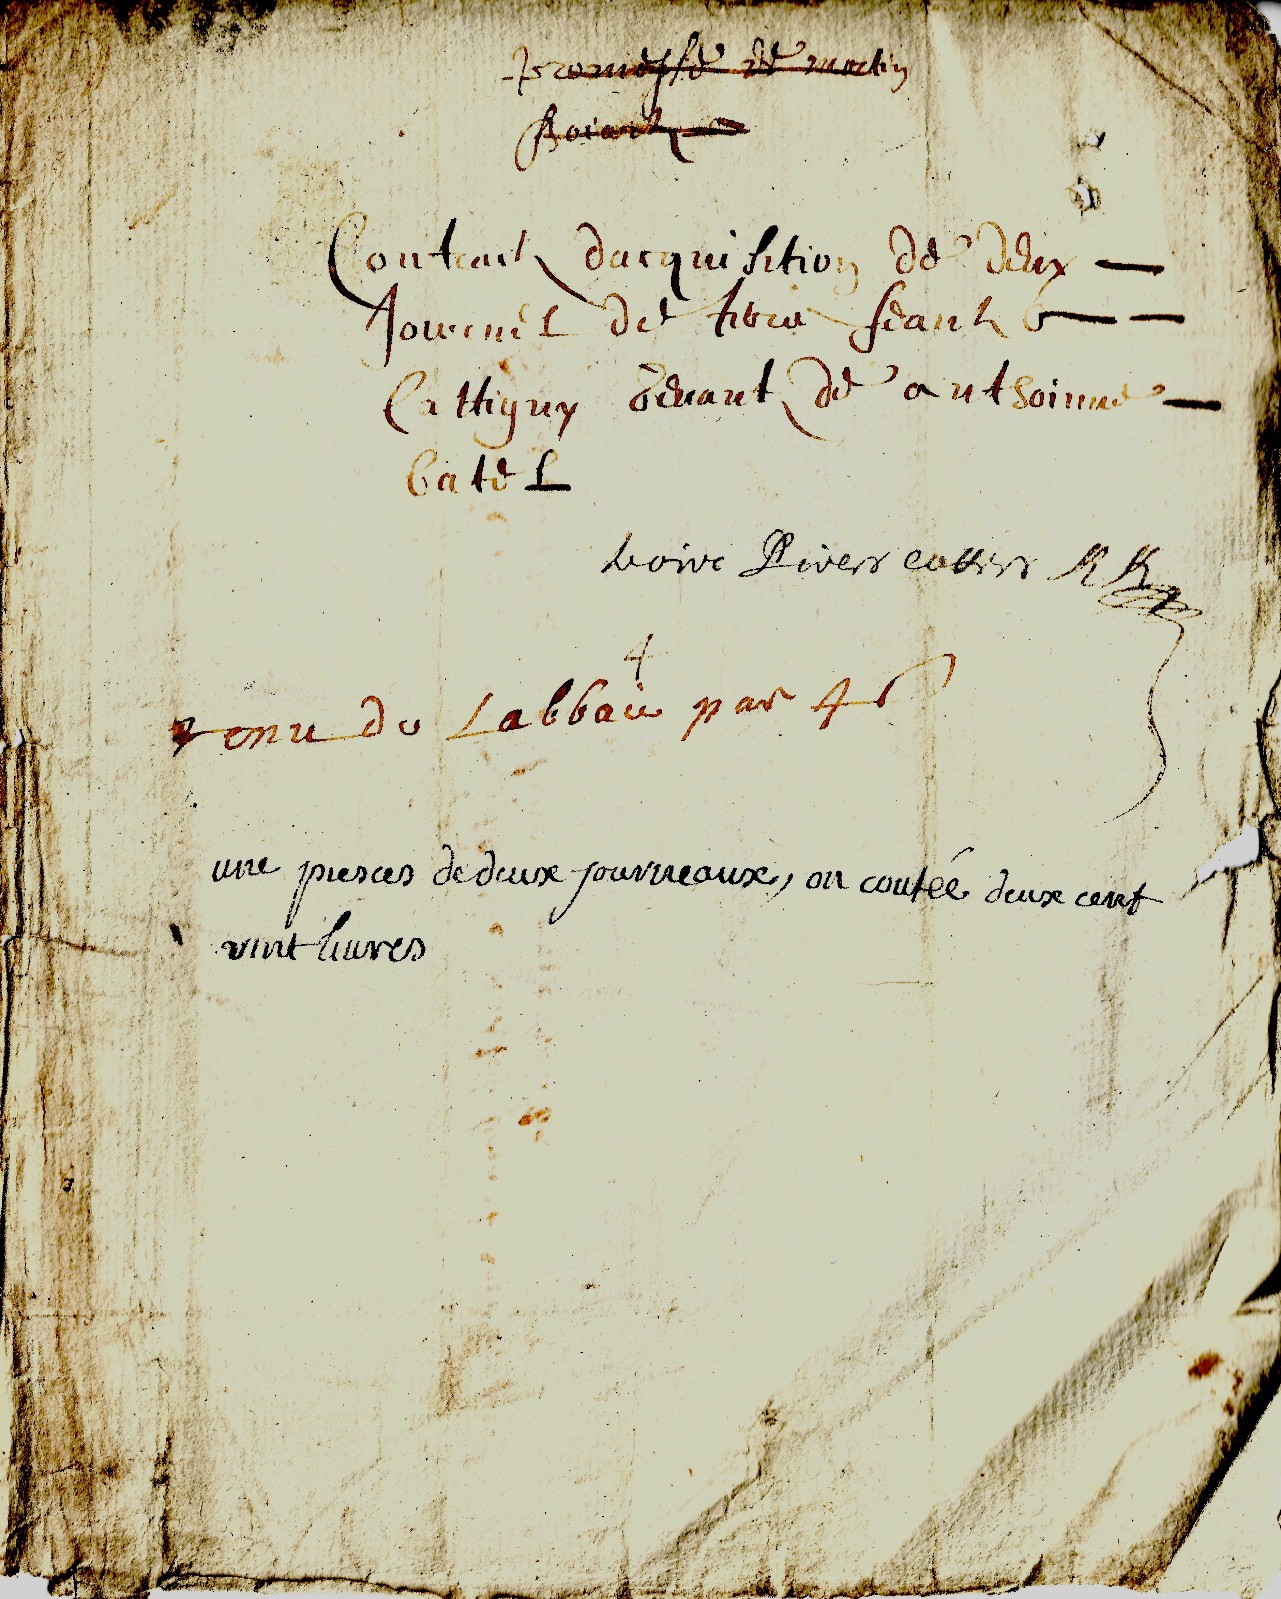 Promesse de martin
Boiart
Contract dacquisition de deux
Journel de terre seant a
Cattigny venant de anthoinne
Catel
Pivers
4
tenu de Labbaie par 4 s
une piesces de deux journeaux, on coutée deux cent
vint livres